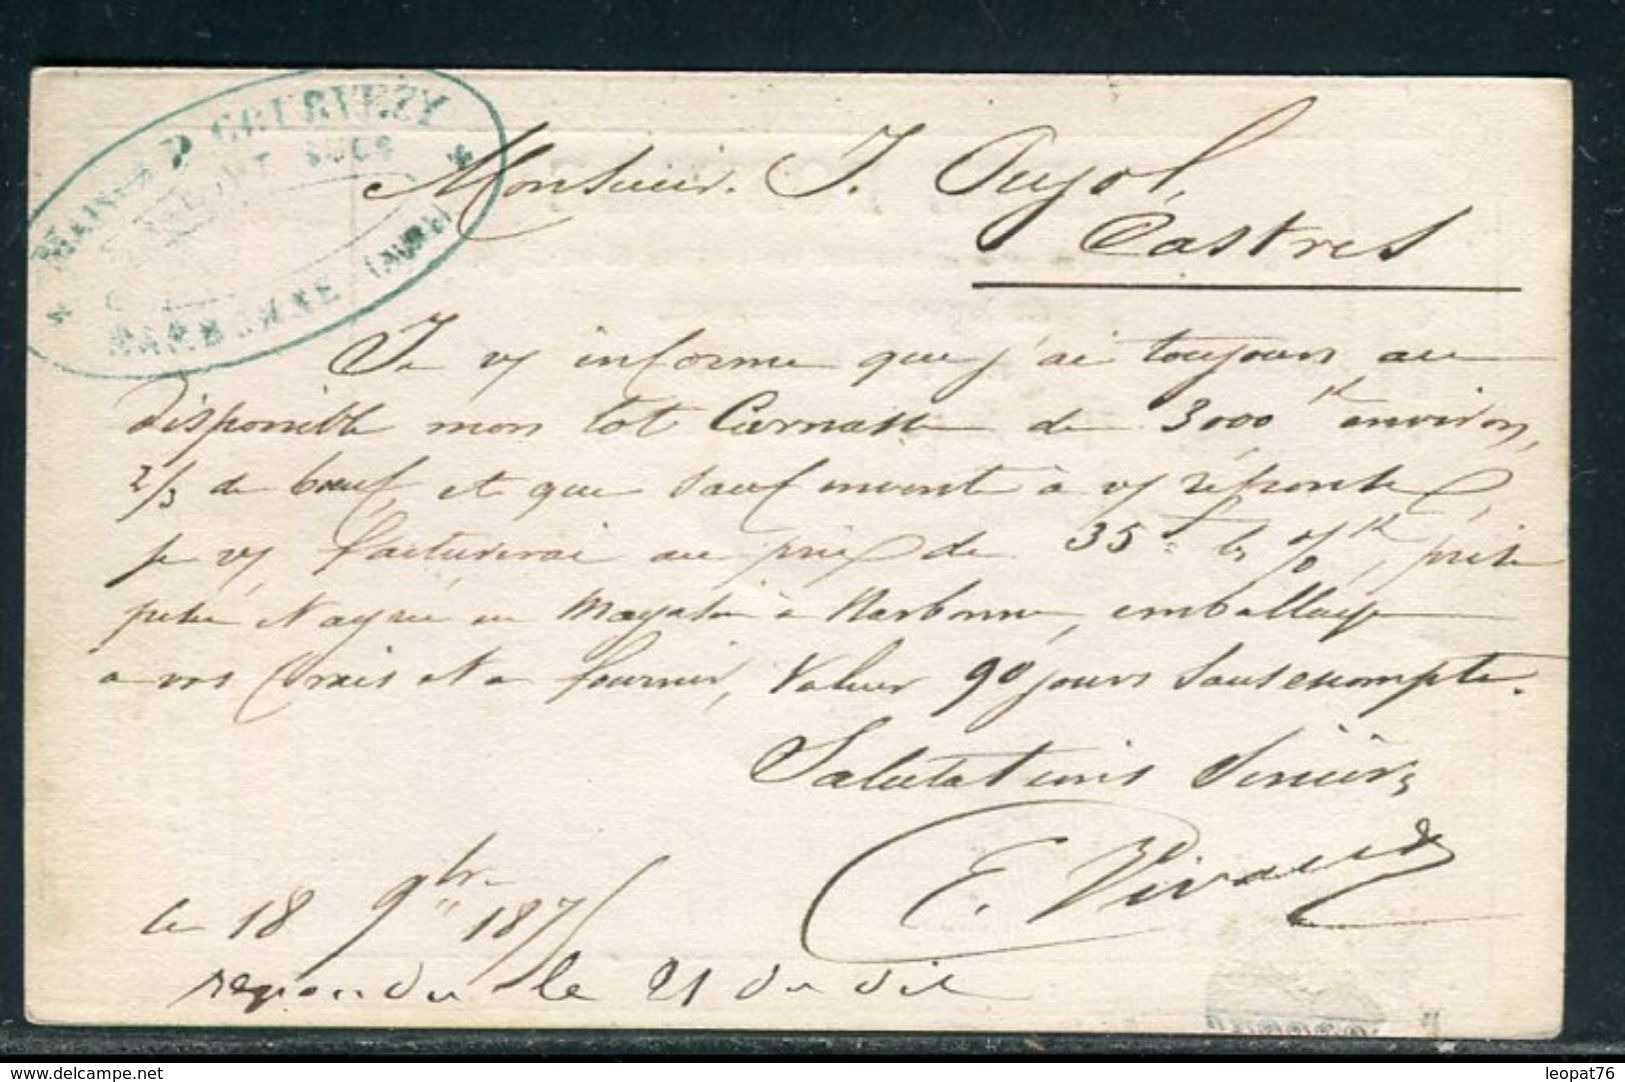 NARBONNE (AUDE)
Monsieur J. Pujol,
Castres
Je vs informe que j'ai toujours au
disponible mon lot Carnasse de 3000 k environ,
2/3 de bœuf, et que sauf invente à vs réponse,
je vs facturerai au prix de 35 f les %k, prise
pesée et agrée en Magasin à Narbonne, emballage
a vos frais et a fournir, Valeur 90 jours sans escompte.
Salutations Sincères
E. Vivarès
le 18 9bre 1875
repondu le 21 du dit
delcampe.net
leopat76